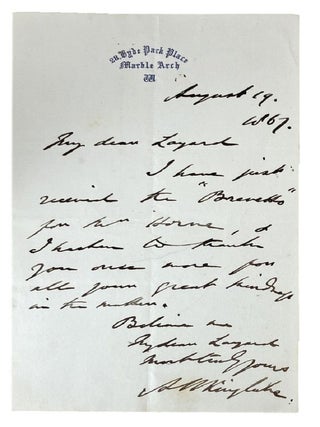 28, Hyde Park Place
Marble Arch
W
August 19.
1867.
My dear Layard
I have just
received the "Brevetto"
for Mr Horne, &
I hasten to thank
you once more for
all your great kindness
in the matter.
Believe me
My dear Layard
Most truly yours
A W Kinglake.